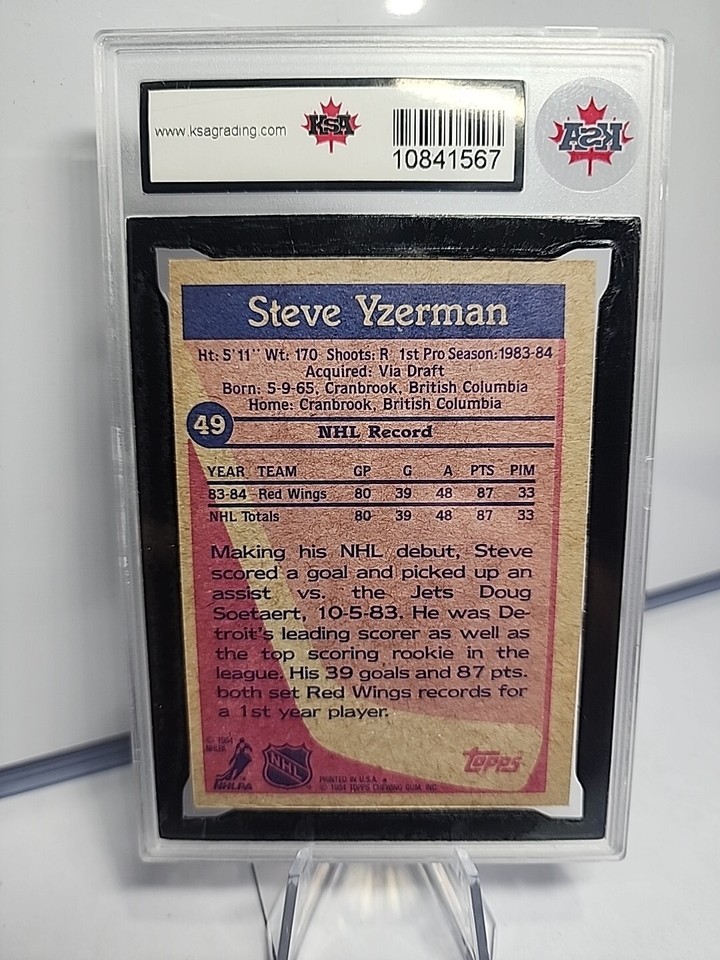 www.ksagrading.com
KSA
10841567
KSA
Steve Yzerman
Ht: 5'11" Wt: 170 Shoots: R 1st Pro Season: 1983-84
Acquired: Via Draft
Born: 5-9-65, Cranbrook, British Columbia
Home: Cranbrook, British Columbia
49
NHL Record
YEAR TEAM GP G A PTS PIM
83-84 Red Wings 80 39 48 87 33
NHL Totals 80 39 48 87 33
Making his NHL debut, Steve
scored a goal and picked up an
assist vs. the Jets Doug
Soetaert, 10-5-83. He was De-
troit's leading scorer as well as
the top scoring rookie in the
league. His 39 goals and 87 pts.
both set Red Wings records for
a 1st year player.
© 1984
NHLPA
NHLPA
NHL
PRINTED IN U.S.A.
© 1984 TOPPS CHEWING GUM, INC.
Topps